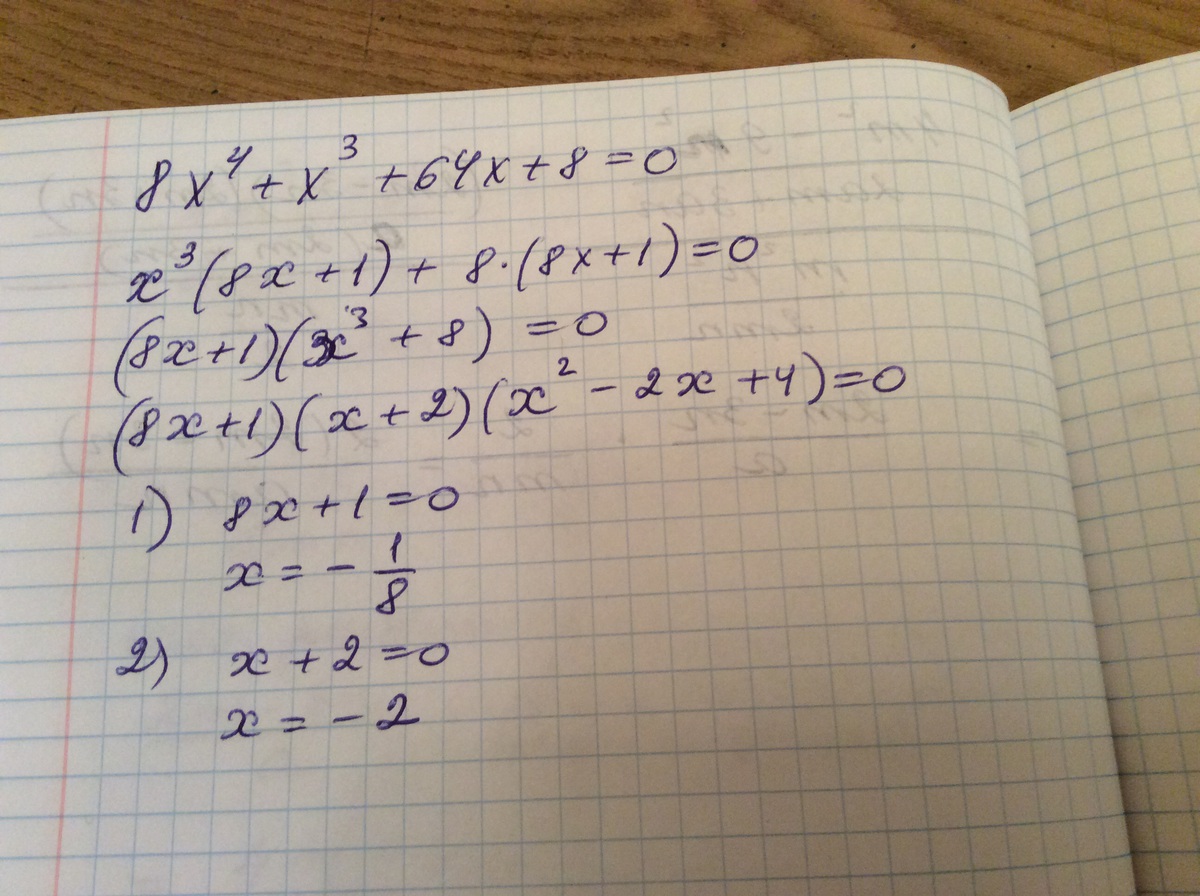 8x⁴ + x³ + 64x + 8 = 0
x³(8x + 1) + 8·(8x + 1) = 0
(8x + 1)(x³ + 8) = 0
(8x + 1)(x + 2)(x² - 2x + 4) = 0
1) 8x + 1 = 0
x = - 1/8
2) x + 2 = 0
x = - 2